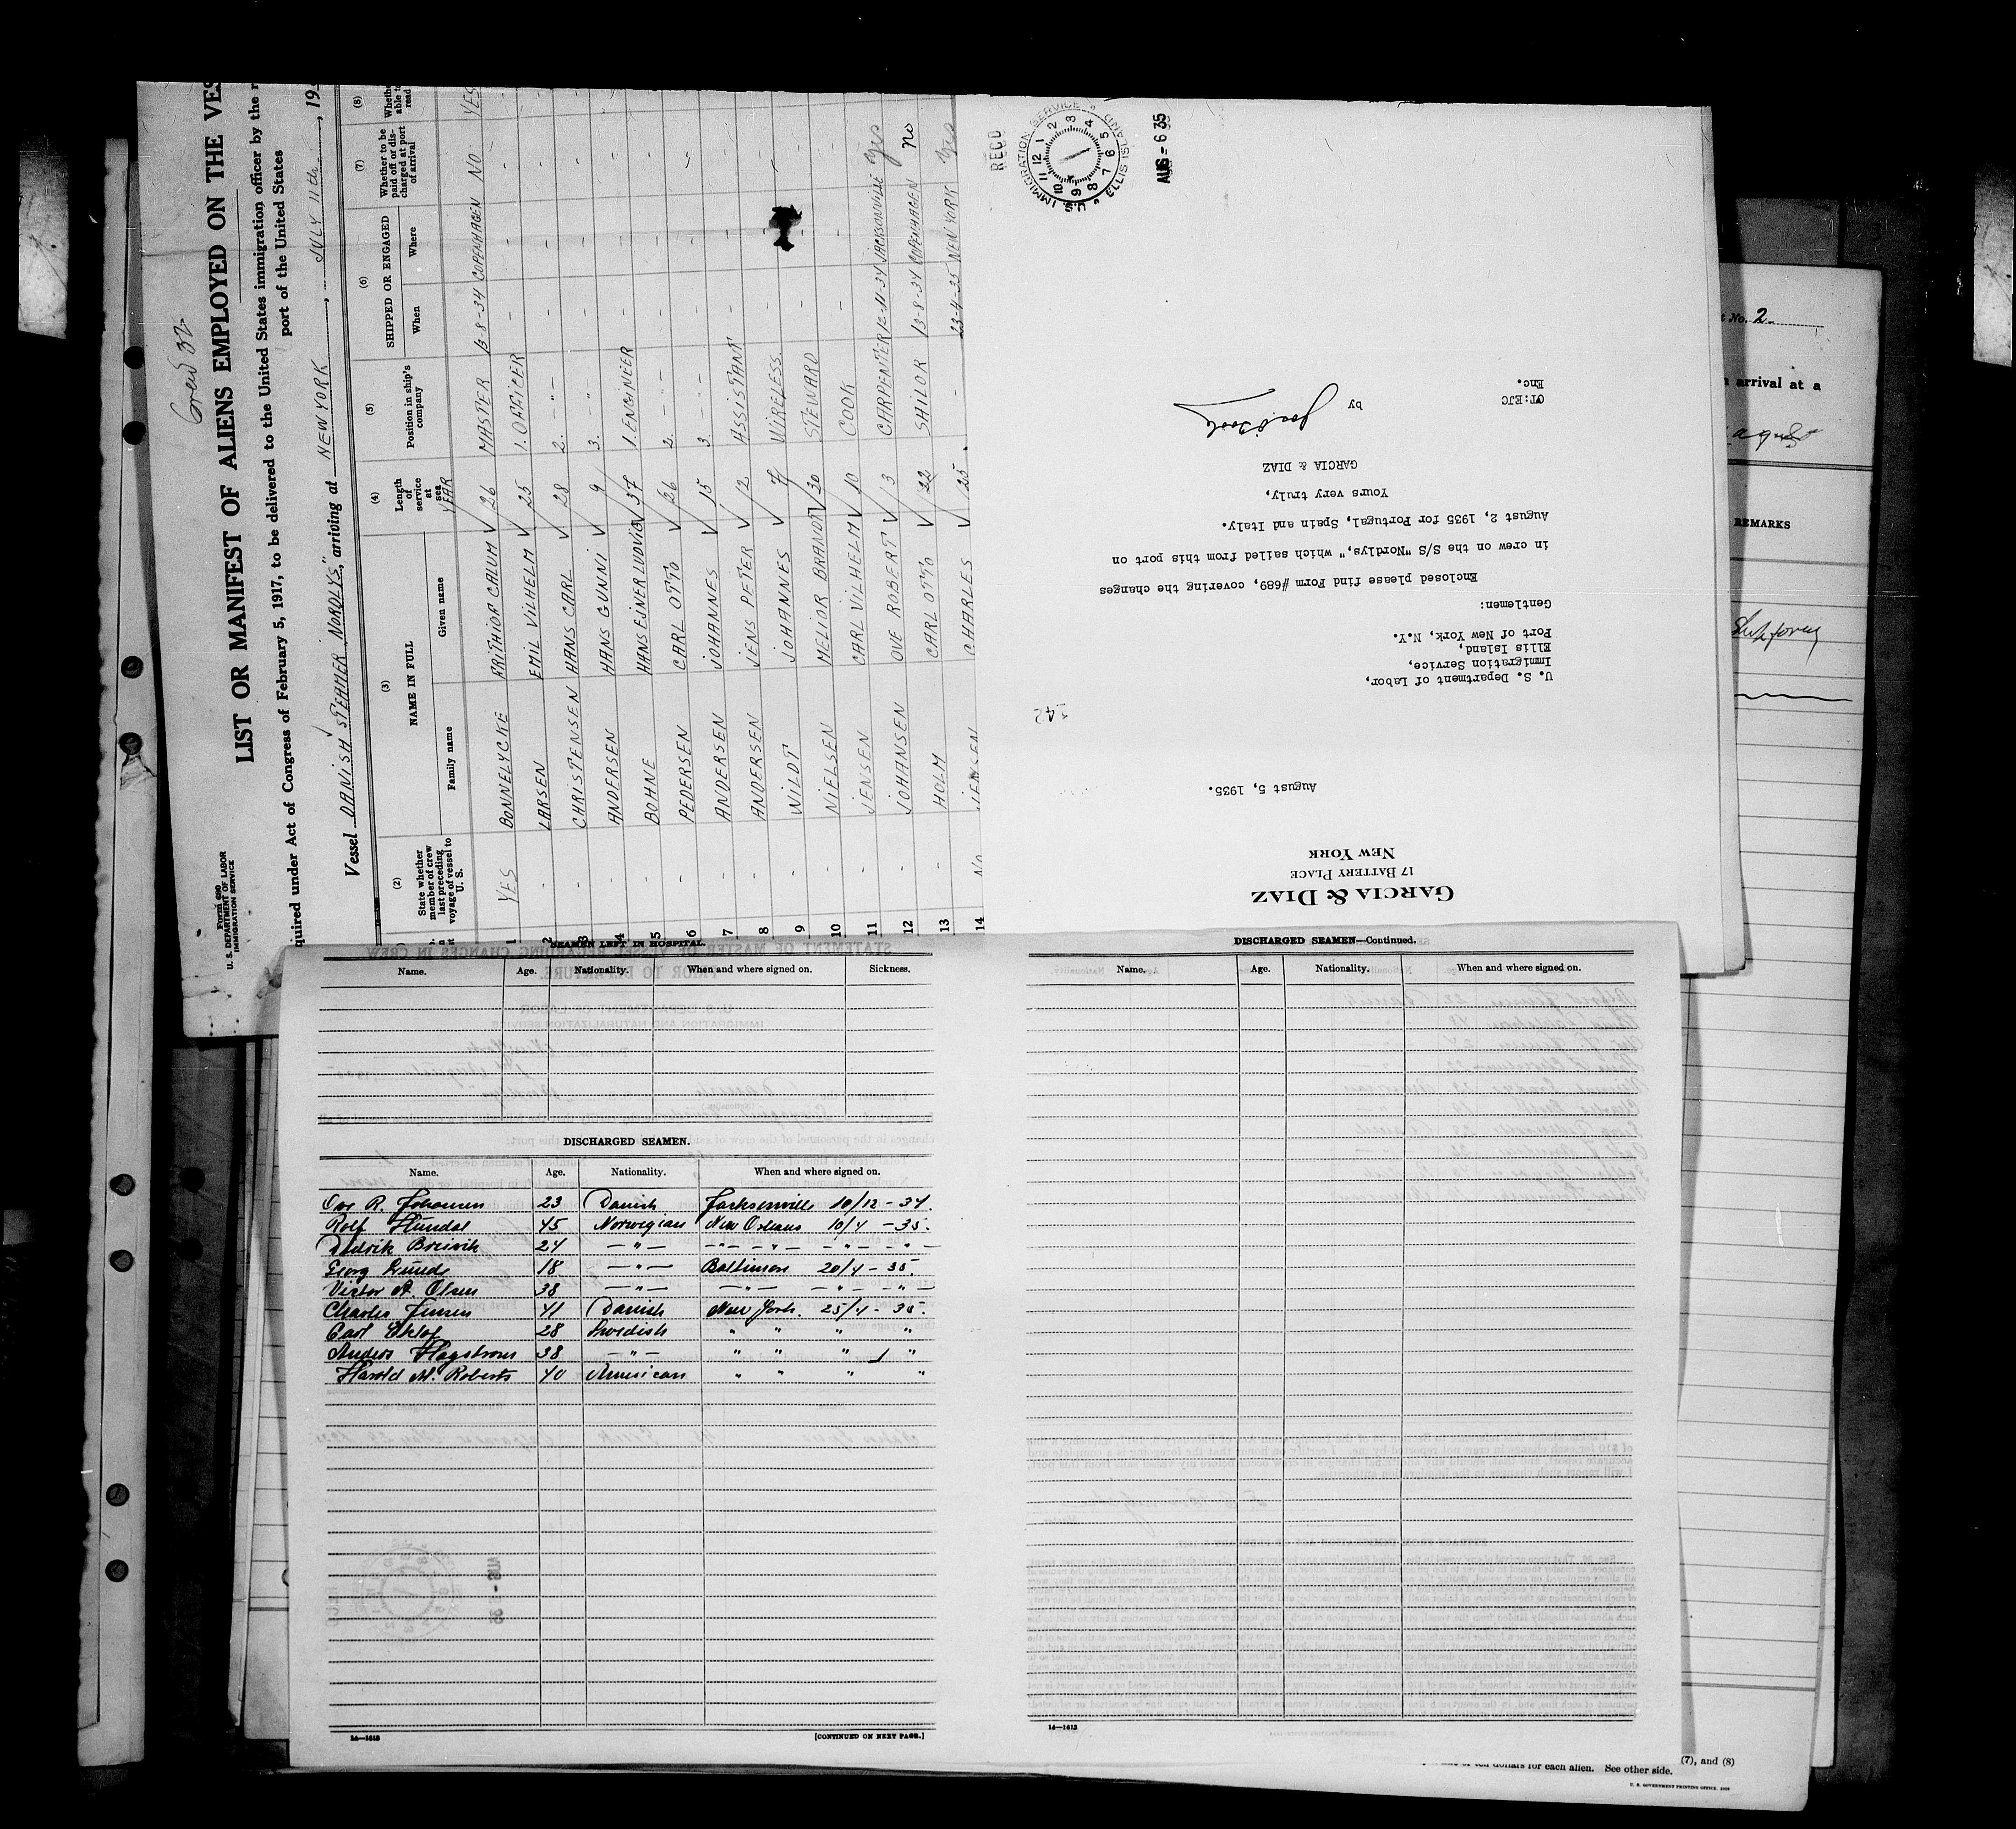 Crew 32
Form 680
U. S. DEPARTMENT OF LABOR
IMMIGRATION SERVICE
LIST OR MANIFEST OF ALIENS EMPLOYED ON THE VES
quired under Act of Congress of February 5, 1917, to be delivered to the United States immigration officer by the r
port of the United States
Vessel DANISH STEAMER "NORDLYS", arriving at NEW YORK, JULY 11th, 19
(2) (3) (4) (5) (6) (7) (8)
State whether member of crew last preceding voyage of vessel to U. S. NAME IN FULL Length of service at sea Position in ship's company SHIPPED OR ENGAGED Whether to be paid off or discharged at port of arrival
Family name Given name YEAR When Where
1 YES BONNELYCKE ARTHIOR CALUM √ 26 MASTER 13-8-34 COPENHAGEN NO YES
2 - LARSEN EMIL VILHELM √ 25 1. OFFICER - - - -
3 - CHRISTENSEN HANS CARL √ 28 2. - " - - - - -
4 - ANDERSEN HANS GUNNI √ 9 3. - " - - - -
5 - BOHNE HANS EINER LUDVIG √ 37 1. ENGINEER - - - -
6 - PEDERSEN CARL OTTO √ 26 2. - - - - - -
7 - ANDERSEN JOHANNES √ 15 3 - - - - - -
8 - ANDERSEN JENS PETER √ 12 ASSISTANT - - - -
9 - WILDT JOHANNES √ 7 WIRELESS - - -
10 - NIELSEN MELIOR BRANDT √ 20 STEWARD - - -
11 - JENSEN CARL VILHELM √ 10 COOK - - -
12 - JOHANSEN OVE ROBERT √ 3 CARPENTER 12-11-34 JACKSONVILLE Yes
13 - HOLM CARL OTTO √ 22 SAILOR 13-8-34 COPENHAGEN no
14 No JENSEN CHARLES √ 25 - 23-4-35 NEW YORK Yes
GARCIA & DIAZ
17 BATTERY PLACE
NEW YORK
August 5, 1935.
142
U. S. Department of Labor,
Immigration Service,
Ellis Island,
Port of New York, N.Y.
Gentlemen:
Enclosed please find Form #689, covering the changes
in crew on the S/S "Nordlys," which sailed from this port on
August 2, 1935 for Portugal, Spain and Italy.
Yours very truly,
GARCIA & DIAZ
by
CT:EJC
Enc.
RECD
U.S. IMMIGRATION SERVICE
ELLIS ISLAND
AUG - 6 35
t No. 2
n arrival at a
REMARKS
SEAMEN LEFT IN HOSPITAL.
Name. Age. Nationality. When and where signed on. Sickness.
DISCHARGED SEAMEN.
Name. Age. Nationality. When and where signed on.
Ove R. Johansen 23 Danish Jacksonville 10/12 - 34.
Rolf Hundal 45 Norwegian New Orleans 10/4 - 35.
Didrik Breivik 24 — " — — " — — " — — " — — " —
Georg Grunde 18 — " — Baltimore 20/4 - 35.
Victor A. Olsen 38 — " — — " — — " — — " —
Charles Jensen 41 Danish New York. 25/4 - 35.
Carl Eklof 28 Swedish " " " "
Anders Hagstrom 38 — " — " " " "
Harold M. Roberts 40 American " " " "
14—1613
[CONTINUED ON NEXT PAGE.]
DISCHARGED SEAMEN—Continued.
Name. Age. Nationality. When and where signed on.
14—1613
(7), and (8)
of ten dollars for each alien. See other side.
U. S. GOVERNMENT PRINTING OFFICE